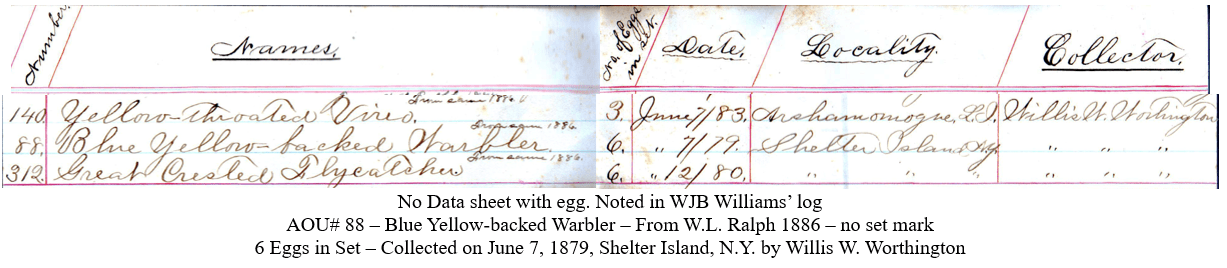 Number. Names. No. of Eggs in set. Date. Locality. Collector.
140. Yellow-throated Vireo. 3. June 7/83. Arshamomogue, L.I. Willis W. Worthington
88. Blue Yellow-backed Warbler. 1886. 6. " 7/79. Shelter Island N.Y. " " "
312. Great Crested Flycatcher 1886. 6. " 12/80. " " " " " "
No Data sheet with egg. Noted in WJB Williams’ log
AOU# 88 – Blue Yellow-backed Warbler – From W.L. Ralph 1886 – no set mark
6 Eggs in Set – Collected on June 7, 1879, Shelter Island, N.Y. by Willis W. Worthington